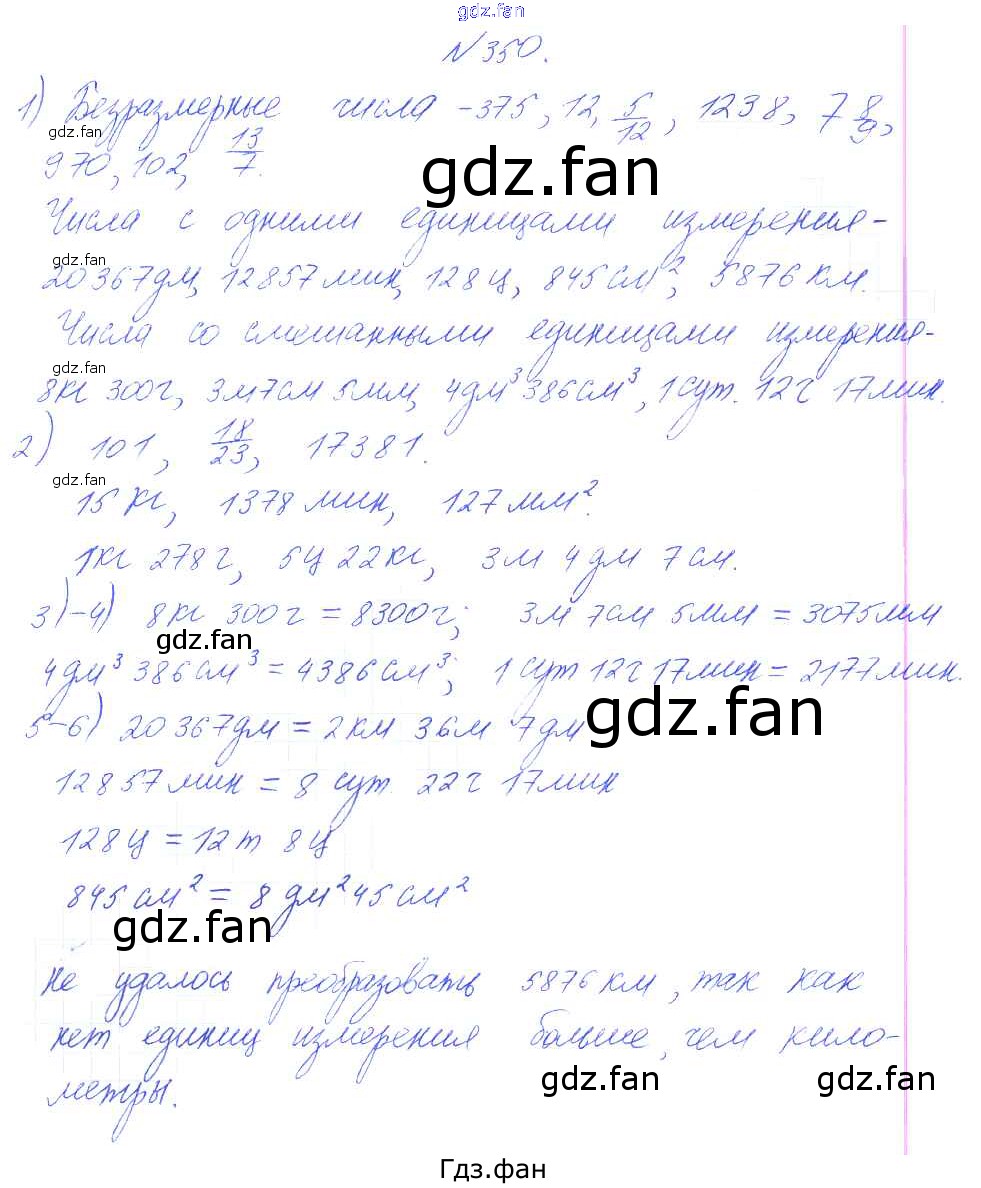 gdz.fan
№ 350.
1) Безразмерные числа - 375, 12, 5/12, 1238, 7 8/9,
gdz.fan
970, 102, 13/7.
gdz.fan
Числа с одними единицами измерения-
gdz.fan
20367дм, 12857мин, 128ц, 845см², 5876км.
Числа со смешанными единицами измерения-
gdz.fan
8кг 300г, 3м7см 5мм, 4дм³ 386см³, 1сут. 12ч 17мин.
2) 101, 18/23, 17381.
gdz.fan
15кг, 1378мин, 127мм².
1кг 278г, 5ц 22кг, 3м 4дм 7см.
3)-4) 8кг 300г = 8300г; 3м 7см 5мм = 3075мм
gdz.fan
4дм³ 386см³ = 4386см³; 1сут 12ч 17мин = 2177мин.
gdz.fan
5-6) 20367дм = 2км 36м 7дм
12857мин = 8 сут. 22ч 17мин
128ц = 12т 8ц
845см² = 8дм² 45см²
gdz.fan
Не удалось преобразовать 5876км, так как
нет единиц измерения больше, чем кило-
gdz.fan gdz.fan
метры.
Гдз.фан